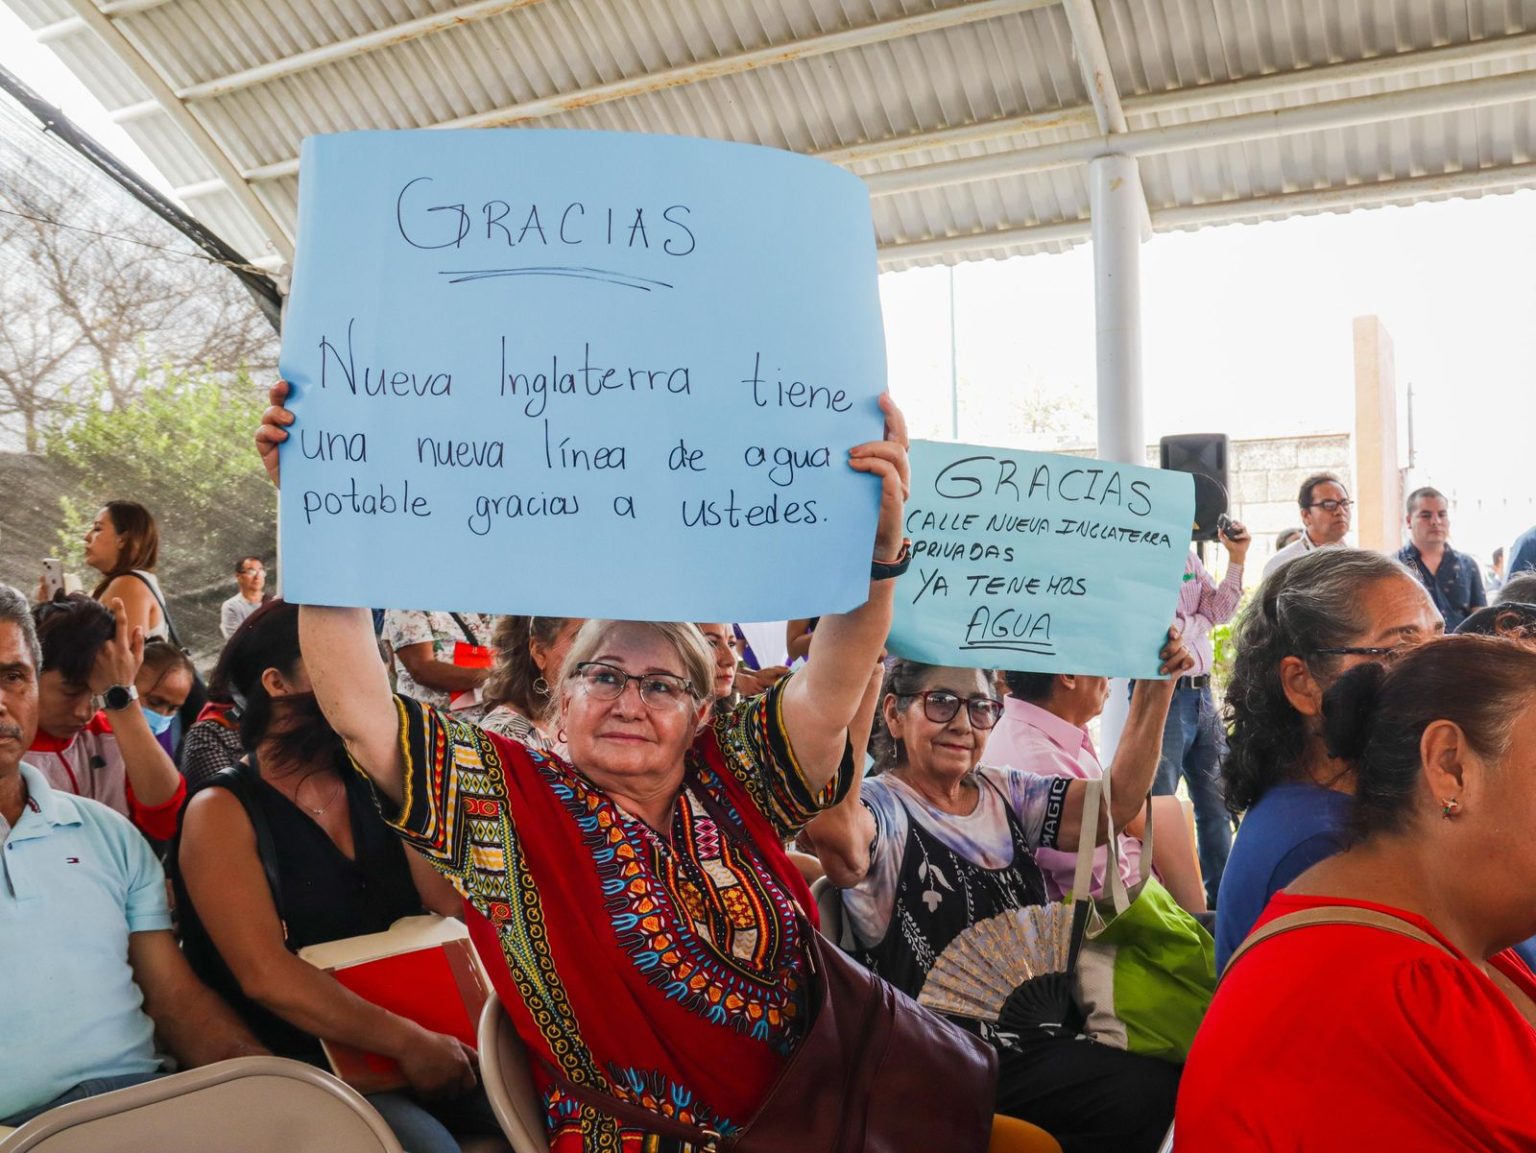 GRACIAS
Nueva Inglaterra tiene
una nueva línea de agua
potable gracias a ustedes.
GRACIAS
CALLE NUEVA INGLATERRA
PRIVADAS
YA TENEMOS
AGUA
MAGIC